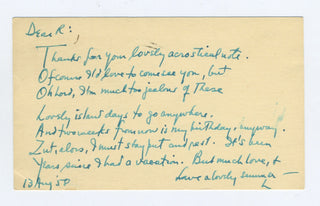 Dear R:,
Thanks for your lovely acrostical note.
Of course I'd love to come see you, but
Oh lord, I'm much too jealous of these
Lovely island days to go anywhere.
And two weeks from now is my birthday, anyway.
Zut, alors, I must stay put and rest. It's been
Years, since I had a vacation. But much love, &
have a lovely summer
13 Aug 50
L